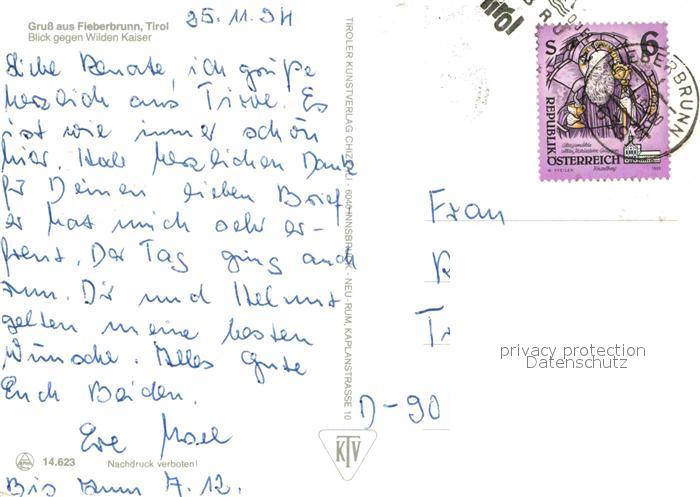 Gruß aus Fieberbrunn, Tirol
Blick gegen Wilden Kaiser
25.11.94
Liebe Renate, ich grüße
herzlich aus Tirol. Es
ist wie immer schön
hier. Hab herzlichen Dank
für Deinen lieben Brief
er hat mich sehr er-
freut. Der Tag ging auch
rum. Dir und Helmut
gelten meine besten
Wünsche. Alles Gute
Euch Beiden.
Eve
Bis zum 7.12.
14.623
Nachdruck verboten!
TIROLER KUNSTVERLAG CHIZZALI · 6040 INNSBRUCK - NEU-RUM, KAPLANSTRASSE 10
KTV
Tirol
S 6
REPUBLIK
ÖSTERREICH
W. PFEILER
1993
FIEBERBRUNN
Frau
R
T
D-90
privacy protection
Datenschutz